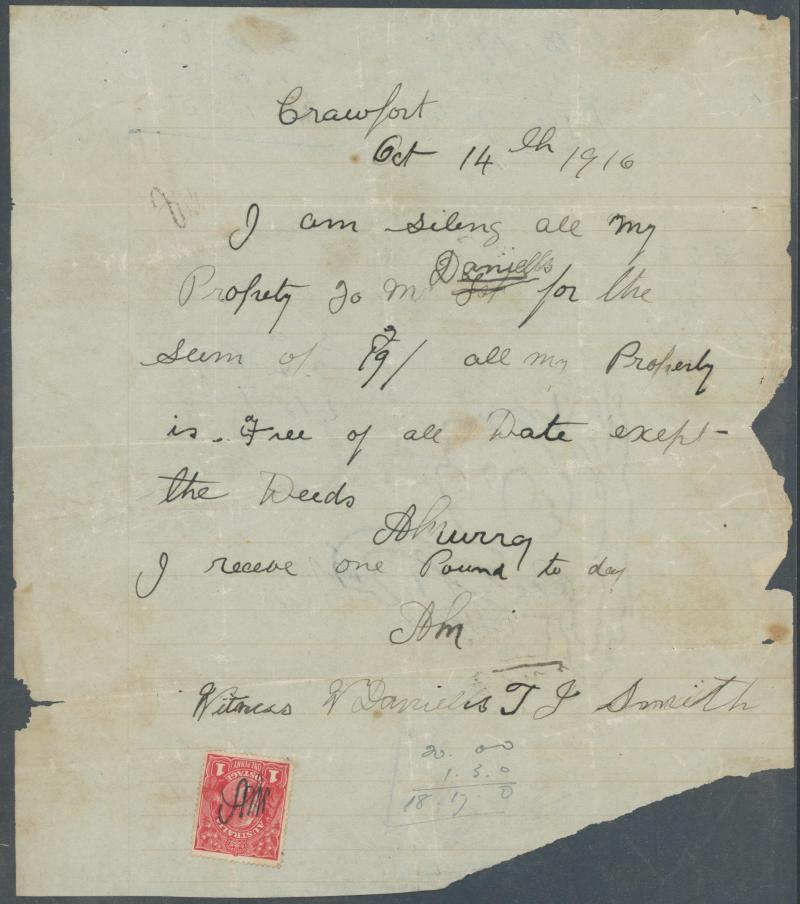 Crawfort
Oct 14th 1916
I am sileng all my
Daniells
Propety To Mr for the
sum of all my Property
is Free of all Date exept
the Deeds
AMurry
I receve one Pound to day
AM
Witness W Daniells T J Smith
20. 00
1. 3. 0
18. 17. 0
1 ONE PENNY 1
POSTAGE
AM
AUSTRALIA